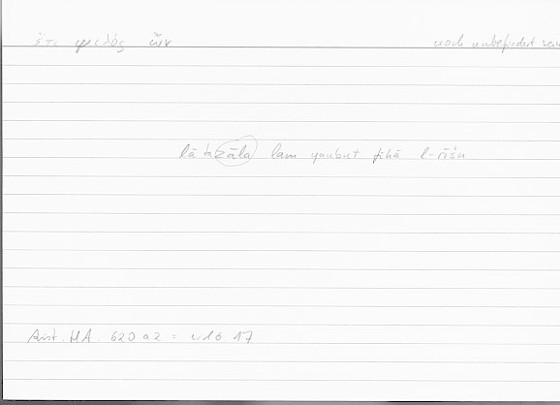 ἔτι ψιλὸς ὤν noch unbefiedert
lā tazāla lam yanbut fīhā l-rīšu
Arist. HA. 620 a2 = 17